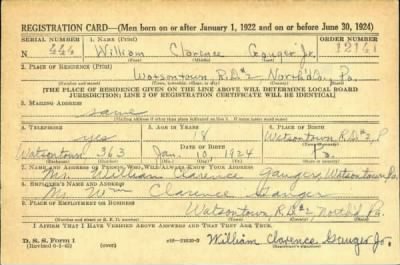 REGISTRATION CARD—(Men born on or after January 1, 1922 and on or before June 30, 1924)
SERIAL NUMBER 1. NAME (Print) ORDER NUMBER
William Clarence Ganger Jr. 12161
(First) (Middle) (Last)
2. PLACE OF RESIDENCE (Print)
Watsontown R.D.#2 North'd Pa.
(Number and street) (Town, township, village, or city) (County) (State)
[THE PLACE OF RESIDENCE GIVEN ON THE LINE ABOVE WILL DETERMINE LOCAL BOARD
JURISDICTION; LINE 2 OF REGISTRATION CERTIFICATE WILL BE IDENTICAL]
3. MAILING ADDRESS
same
[Mailing address if other than place indicated on line 2. If same insert word same]
4. TELEPHONE 5. AGE IN YEARS 6. PLACE OF BIRTH
yes 18 Watsontown R.D.#2, P
DATE OF BIRTH
Watsontown 363 Jan. 10 1924 Pa.
(Exchange) (Number) (Mo.) (Day) (Yr.) (State or country)
7. NAME AND ADDRESS OF PERSON WHO WILL ALWAYS KNOW YOUR ADDRESS
Mr. William Clarence Ganger, Watsontown, Pa.
8. EMPLOYER'S NAME AND ADDRESS
Mr. Wm Clarence Ganger
9. PLACE OF EMPLOYMENT OR BUSINESS
Watsontown R.D.#2, North'd Pa.
(Number and street or R. F. D. number) (Town) (County) (State)
I AFFIRM THAT I HAVE VERIFIED ABOVE ANSWERS AND THAT THEY ARE TRUE.
D. S. S. Form 1
(over) William Clarence Ganger Jr.